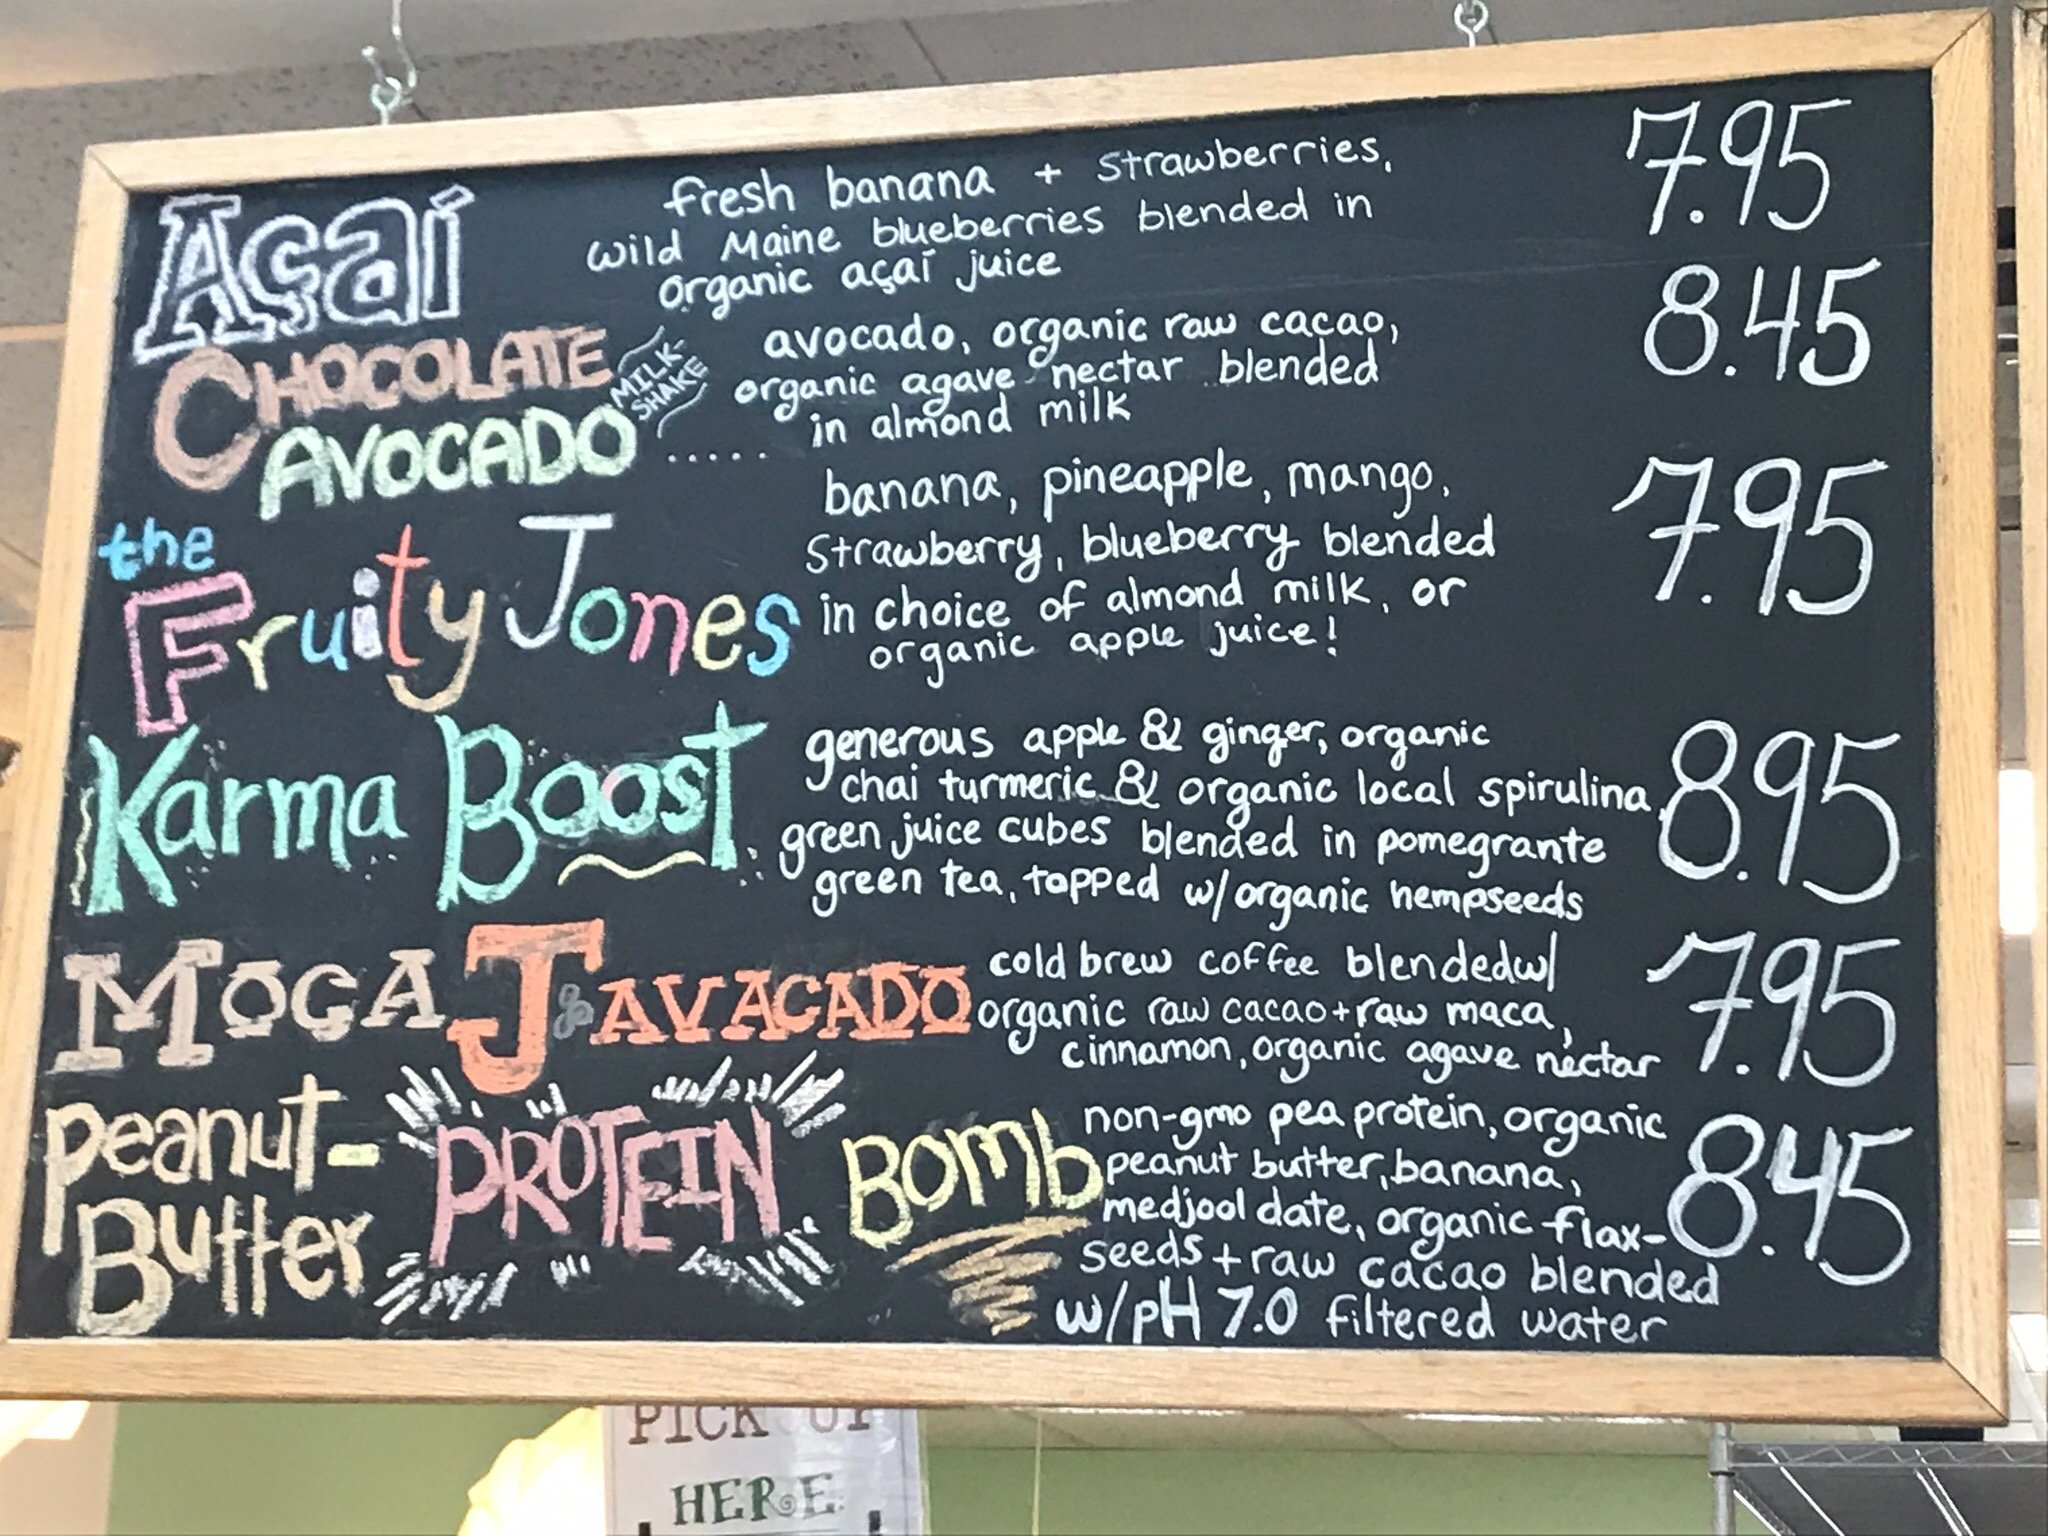 Açaí
fresh banana + strawberries,
wild Maine blueberries blended in
organic açaí juice
7.95
CHOCOLATE
AVOCADO
MILK-
SHAKE
.....
avocado, organic raw cacao,
organic agave nectar blended
in almond milk
8.45
the
Fruity Jones
banana, pineapple, mango,
strawberry, blueberry blended
in choice of almond milk, or
organic apple juice!
7.95
Karma Boost
generous apple & ginger, organic
chai turmeric & organic local spirulina,
green juice cubes blended in pomegrante
green tea, topped w/organic hempseeds
8.95
MOÇA JAVACADO
cold brew coffee blended w/
organic raw cacao + raw maca,
cinnamon, organic agave nectar
7.95
Peanut-
Butter
PROTEIN
BOMb
non-gmo pea protein, organic
peanut butter, banana,
medjool date, organic flax-
seeds + raw cacao blended
w/pH 7.0 filtered water
8.45
PICK UP
HERE